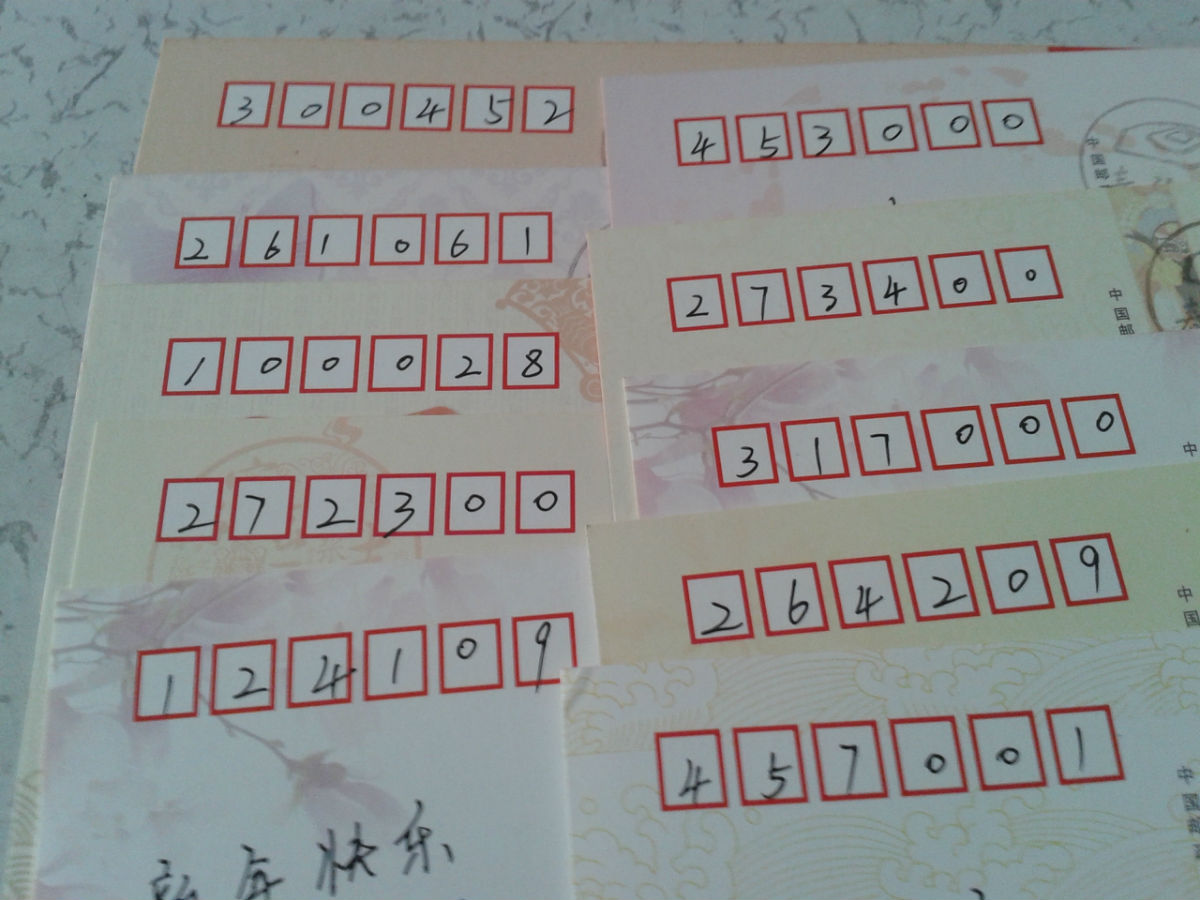 300452
261061
100028
272300
124109
新年快乐
453000
中国邮
273400
中国邮
317000
中
264209
中国
457001
中国邮政